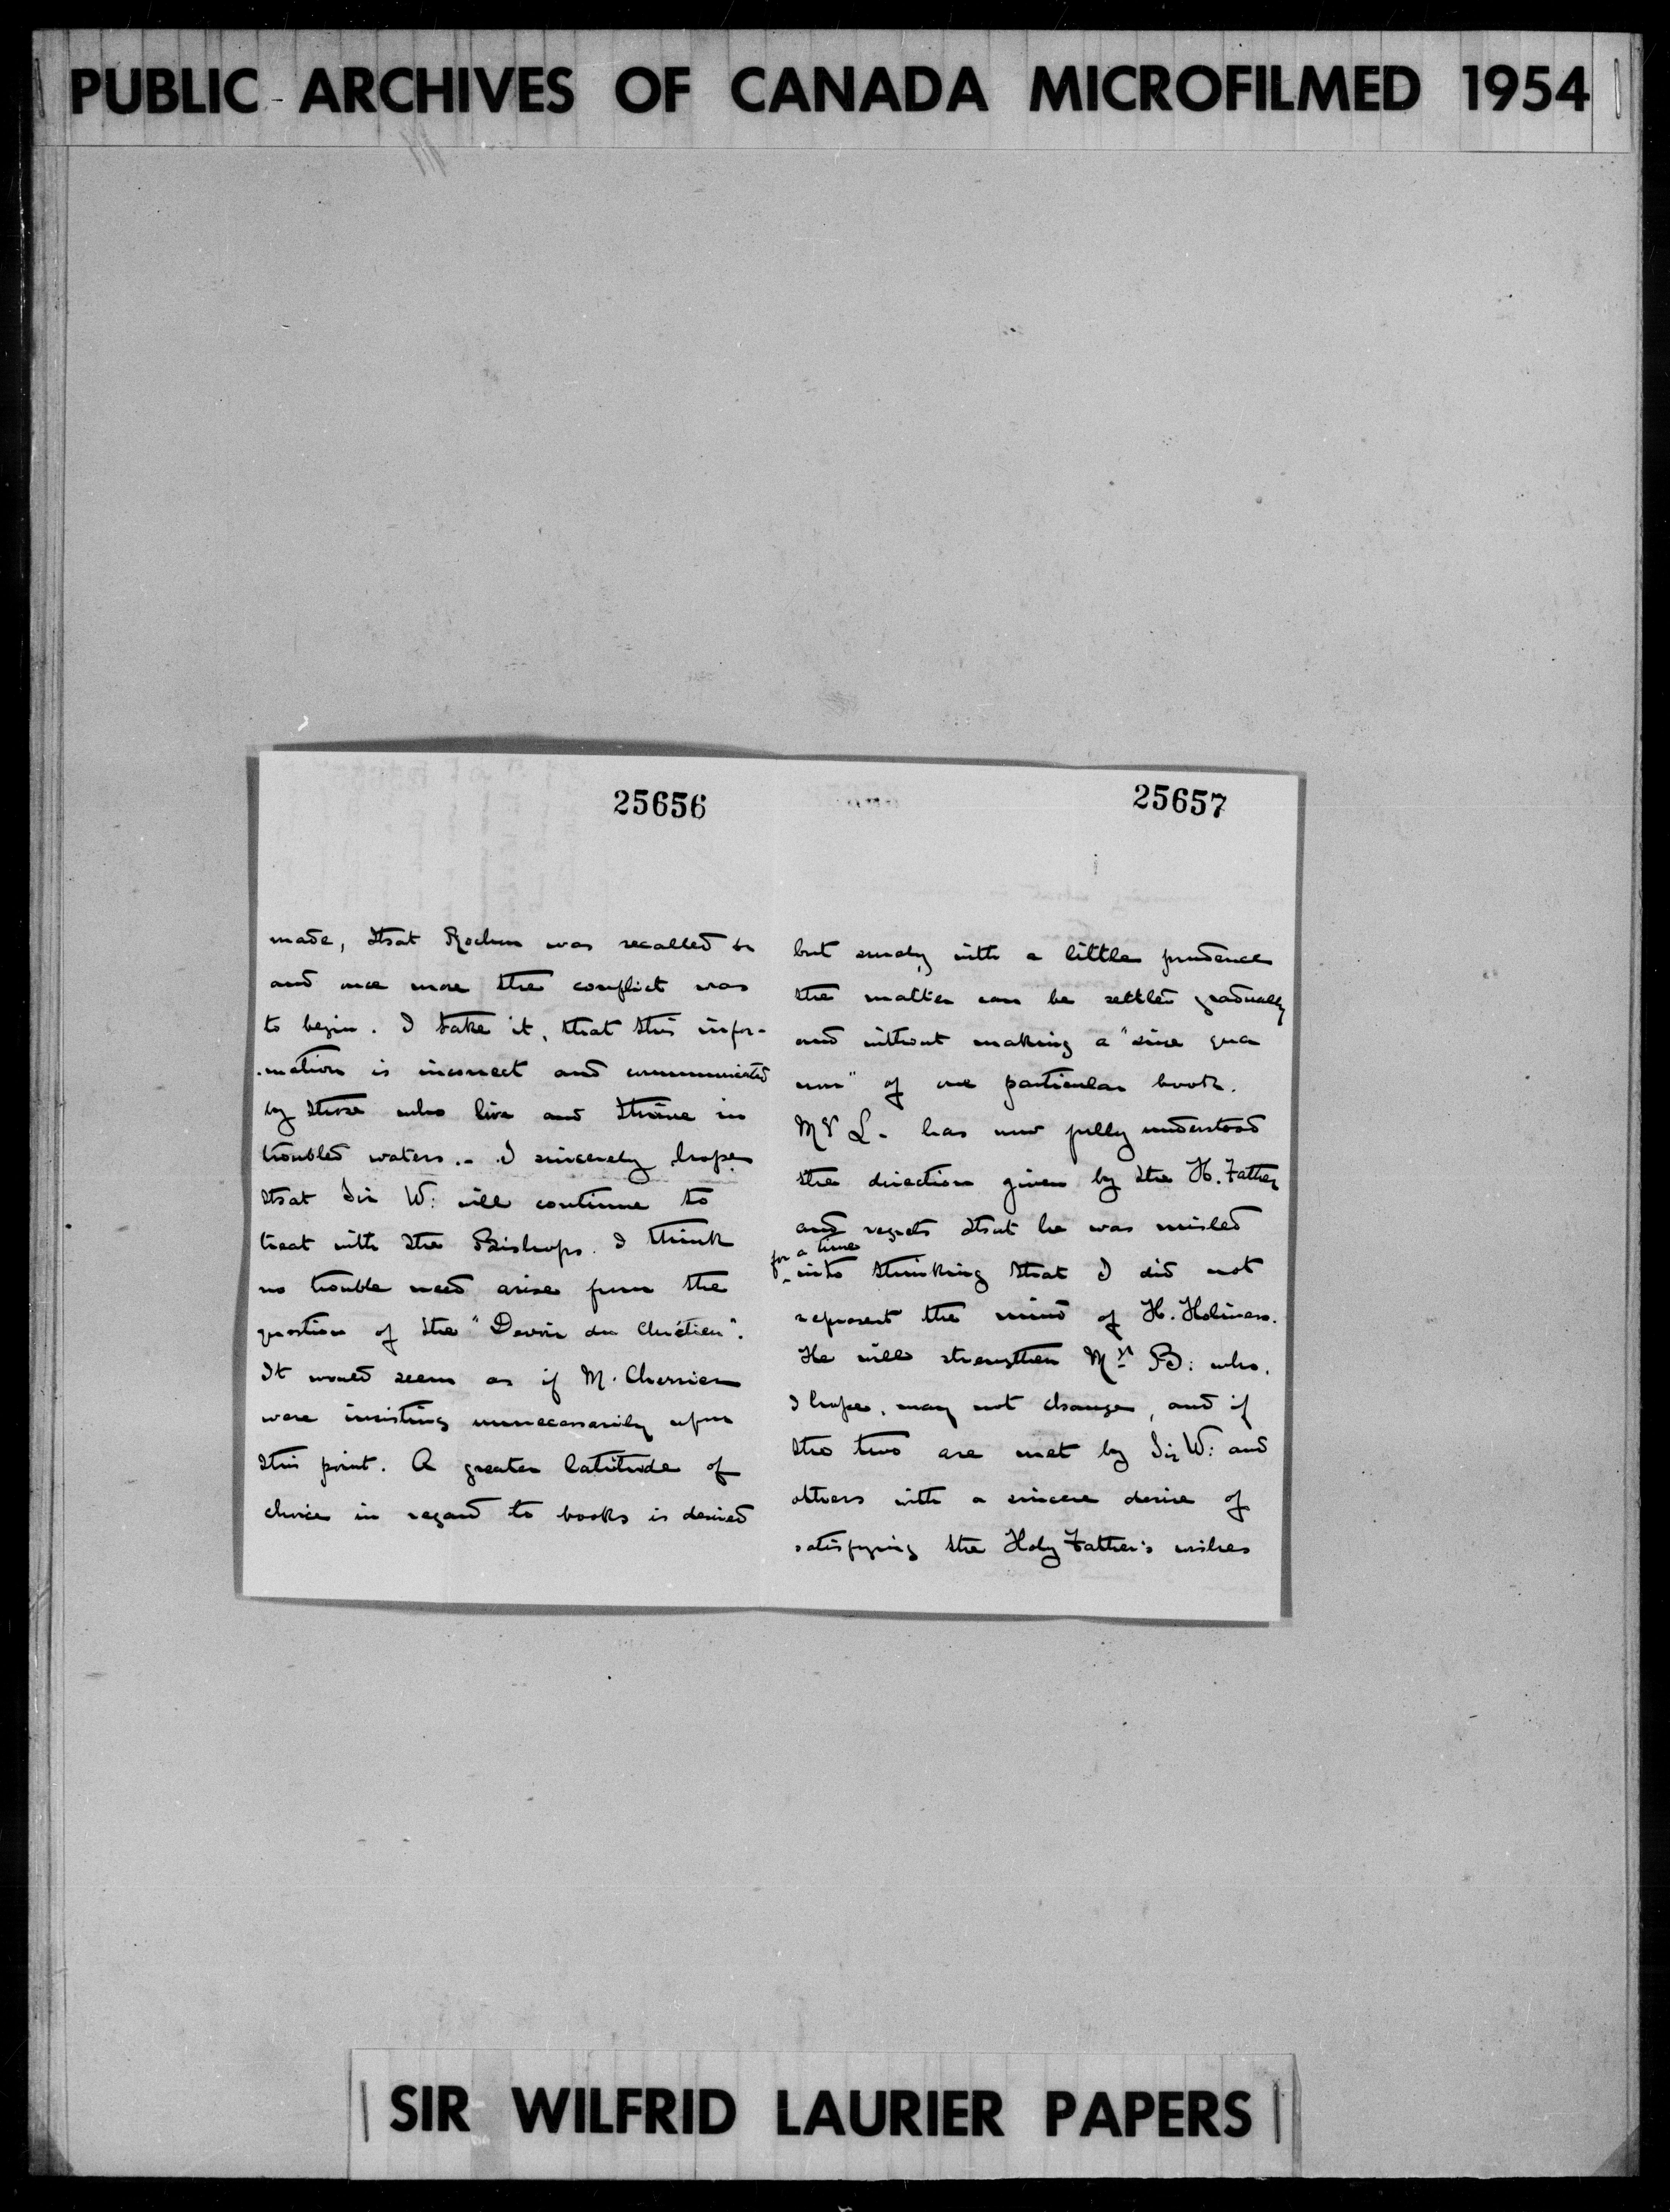 PUBLIC ARCHIVES OF CANADA MICROFILMED 1954
25656
made, that Rochon was recalled &c
and once more the conflict was
to begin. I take it, that this infor-
-mation is incorrect and communicated
by those who live and thrive in
troubled waters.. I sincerely hope
that Sir W: will continue to
treat with the Bishops. I think
no trouble need arise from the
question of the "Devoir du Chrétien".
It would seem as if M. Cherrier
were insisting unnecessarily upon
this point. A greater latitude of
choice in regard to books is desired
25657
but surely with a little prudence
the matter can be settled gradually
and without making a "sine qua
non" of one particular book.
Mgr L. has now fully understood
the direction given by the H. Father
and regrets that he was misled
for a time
into thinking that I did not
represent the mind of H. Holiness.
He will strengthen Mgr B: who,
I hope, may not change, and if
the two are met by Sir W: and
others with a sincere desire of
satisfying the Holy Father's wishes
SIR WILFRID LAURIER PAPERS